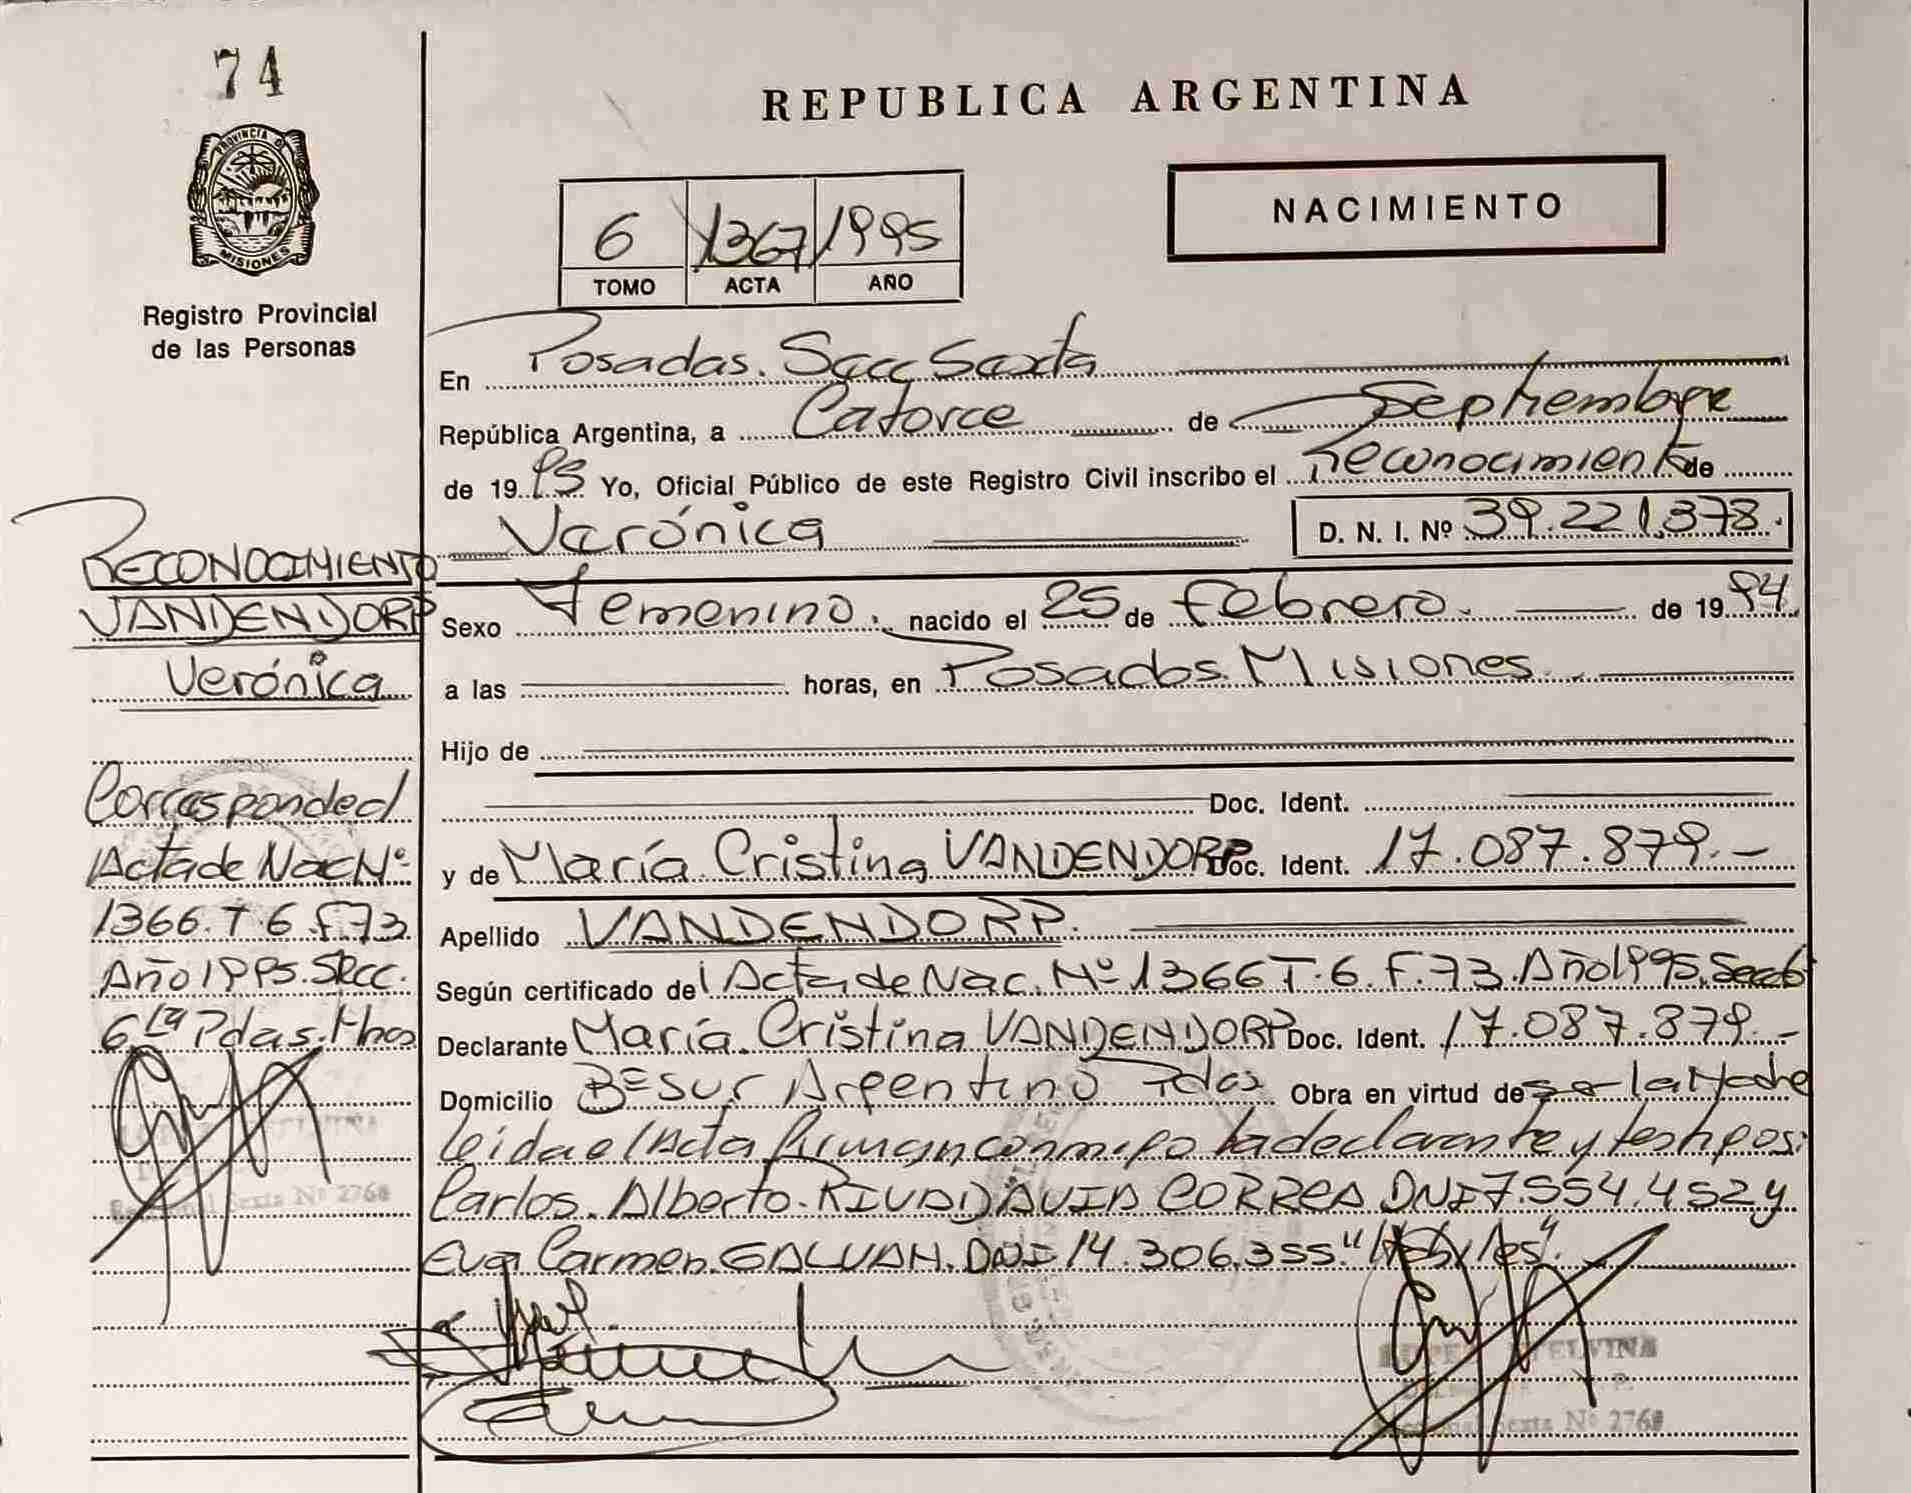 74
PROVINCIA DE
MISIONES
Registro Provincial
de las Personas
RECONOCIMIENTO
VANDENDORP
Verónica
Corresponde al
Acta de Nac Nº
1366. T. 6. F. 73
Año 1995. Secc.
6ta Pdas. Mnes
Seccional Sexta Nº 2768
REPUBLICA ARGENTINA
NACIMIENTO
6 1367 1995
TOMO ACTA AÑO
En Posadas. Secc Sexta
República Argentina, a Catorce de Septiembre
de 1995 Yo, Oficial Público de este Registro Civil inscribo el Reconocimiento de
Verónica D. N. I. Nº 39.221.378.
Sexo Femenino. nacido el 25 de Febrero. de 1994
a las horas, en Posadas. Misiones.
Hijo de
Doc. Ident.
y de María Cristina VANDENDORP Doc. Ident. 17.087.879.-
Apellido VANDENDORP.
Según certificado del Acta de Nac. Nº 1366 T. 6. F. 73. Año 1995. Secc 6
Declarante María Cristina VANDENDORP Doc. Ident. 17.087.879.-
Domicilio Bº Sur Argentino Pdas Obra en virtud de ser la Madre
leida el Acta firman conmigo la declarante y testigos:
Carlos Alberto RIVADAVIA CORREA DNI 7.554.452 y
Eva Carmen GALVAN. DNI 14.306.355.
Seccional Sexta Nº 2768